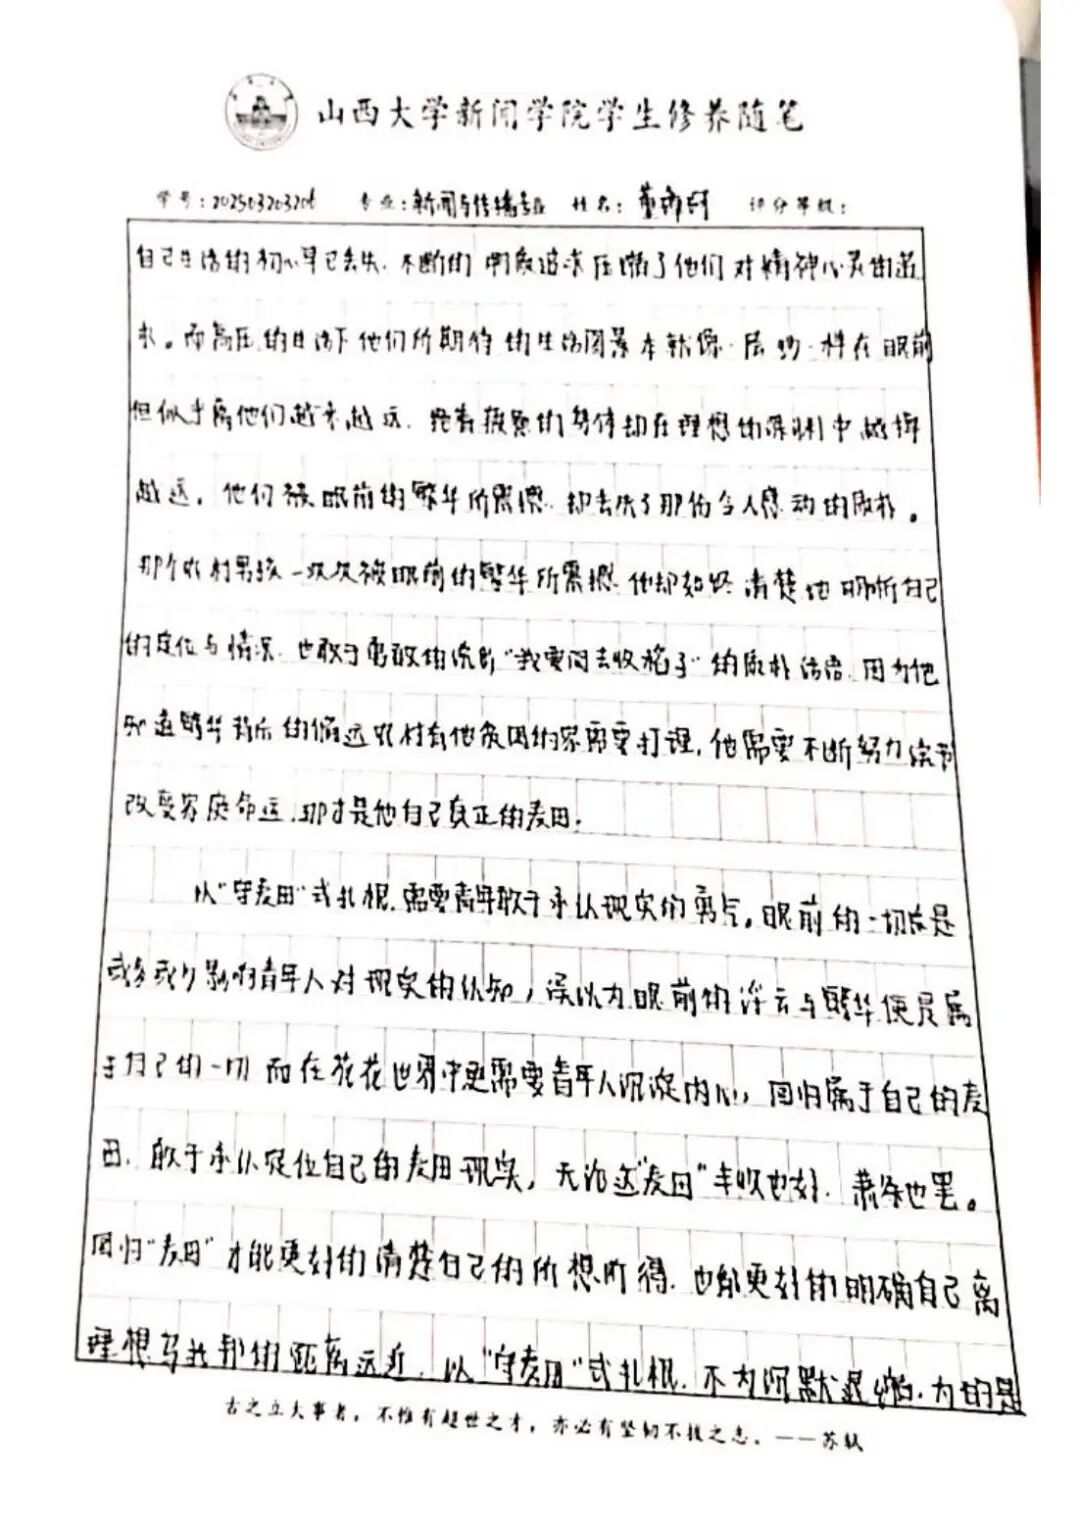 山西大学新闻学院学生修养随笔
学号：202503203206 专业：新闻与传播专业 姓名：董 评分等级：
自己生活的初心早已丢失，不断的物质追求压塌了他们对精神心灵的追
求。而高压的生活下他们所期待的生活图景本就像一层纱一样在眼前
但似乎离他们越来越远，拖着疲惫的身体却在理想的深渊中越掉
越远，他们被眼前的繁华所震撼，却丢失了那份令人感动的质朴。
那个农村男孩一次次被眼前的繁华所震撼，他却始终清楚地明晰自己
的定位与情况，也敢于勇敢的说出“我要回去收稻子”的质朴话语，因为他
知道繁华背后的偏远农村有他贫困的家需要打理，他需要不断努力读书
改变家庭命运，那才是他自己真正的麦田。
以“守麦田”式扎根，需要青年敢于承认现实的勇气。眼前的一切总是
或多或少影响青年人对现实的认知，误以为眼前的浮云与繁华便是属
于自己的一切，而在花花世界中更需要青年人沉淀内心，回归属于自己的麦
田，敢于承认定位自己的麦田现实，无论这“麦田”丰收也好，萧条也罢。
回归“麦田”才能更好的清楚自己的所想所得，也能更好的明确自己离
理想乌托邦的距离远近，以“守麦田”式扎根，不为沉默退缩，为的是
古之立大事者，不惟有超世之才，亦必有坚韧不拔之志。——苏轼